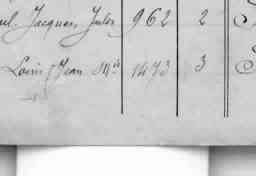 Jacques, Jules 962 2
Louis Jean M.ie 1473 3